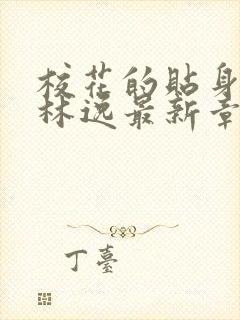 校花的贴身
林逸最新章
丁臺